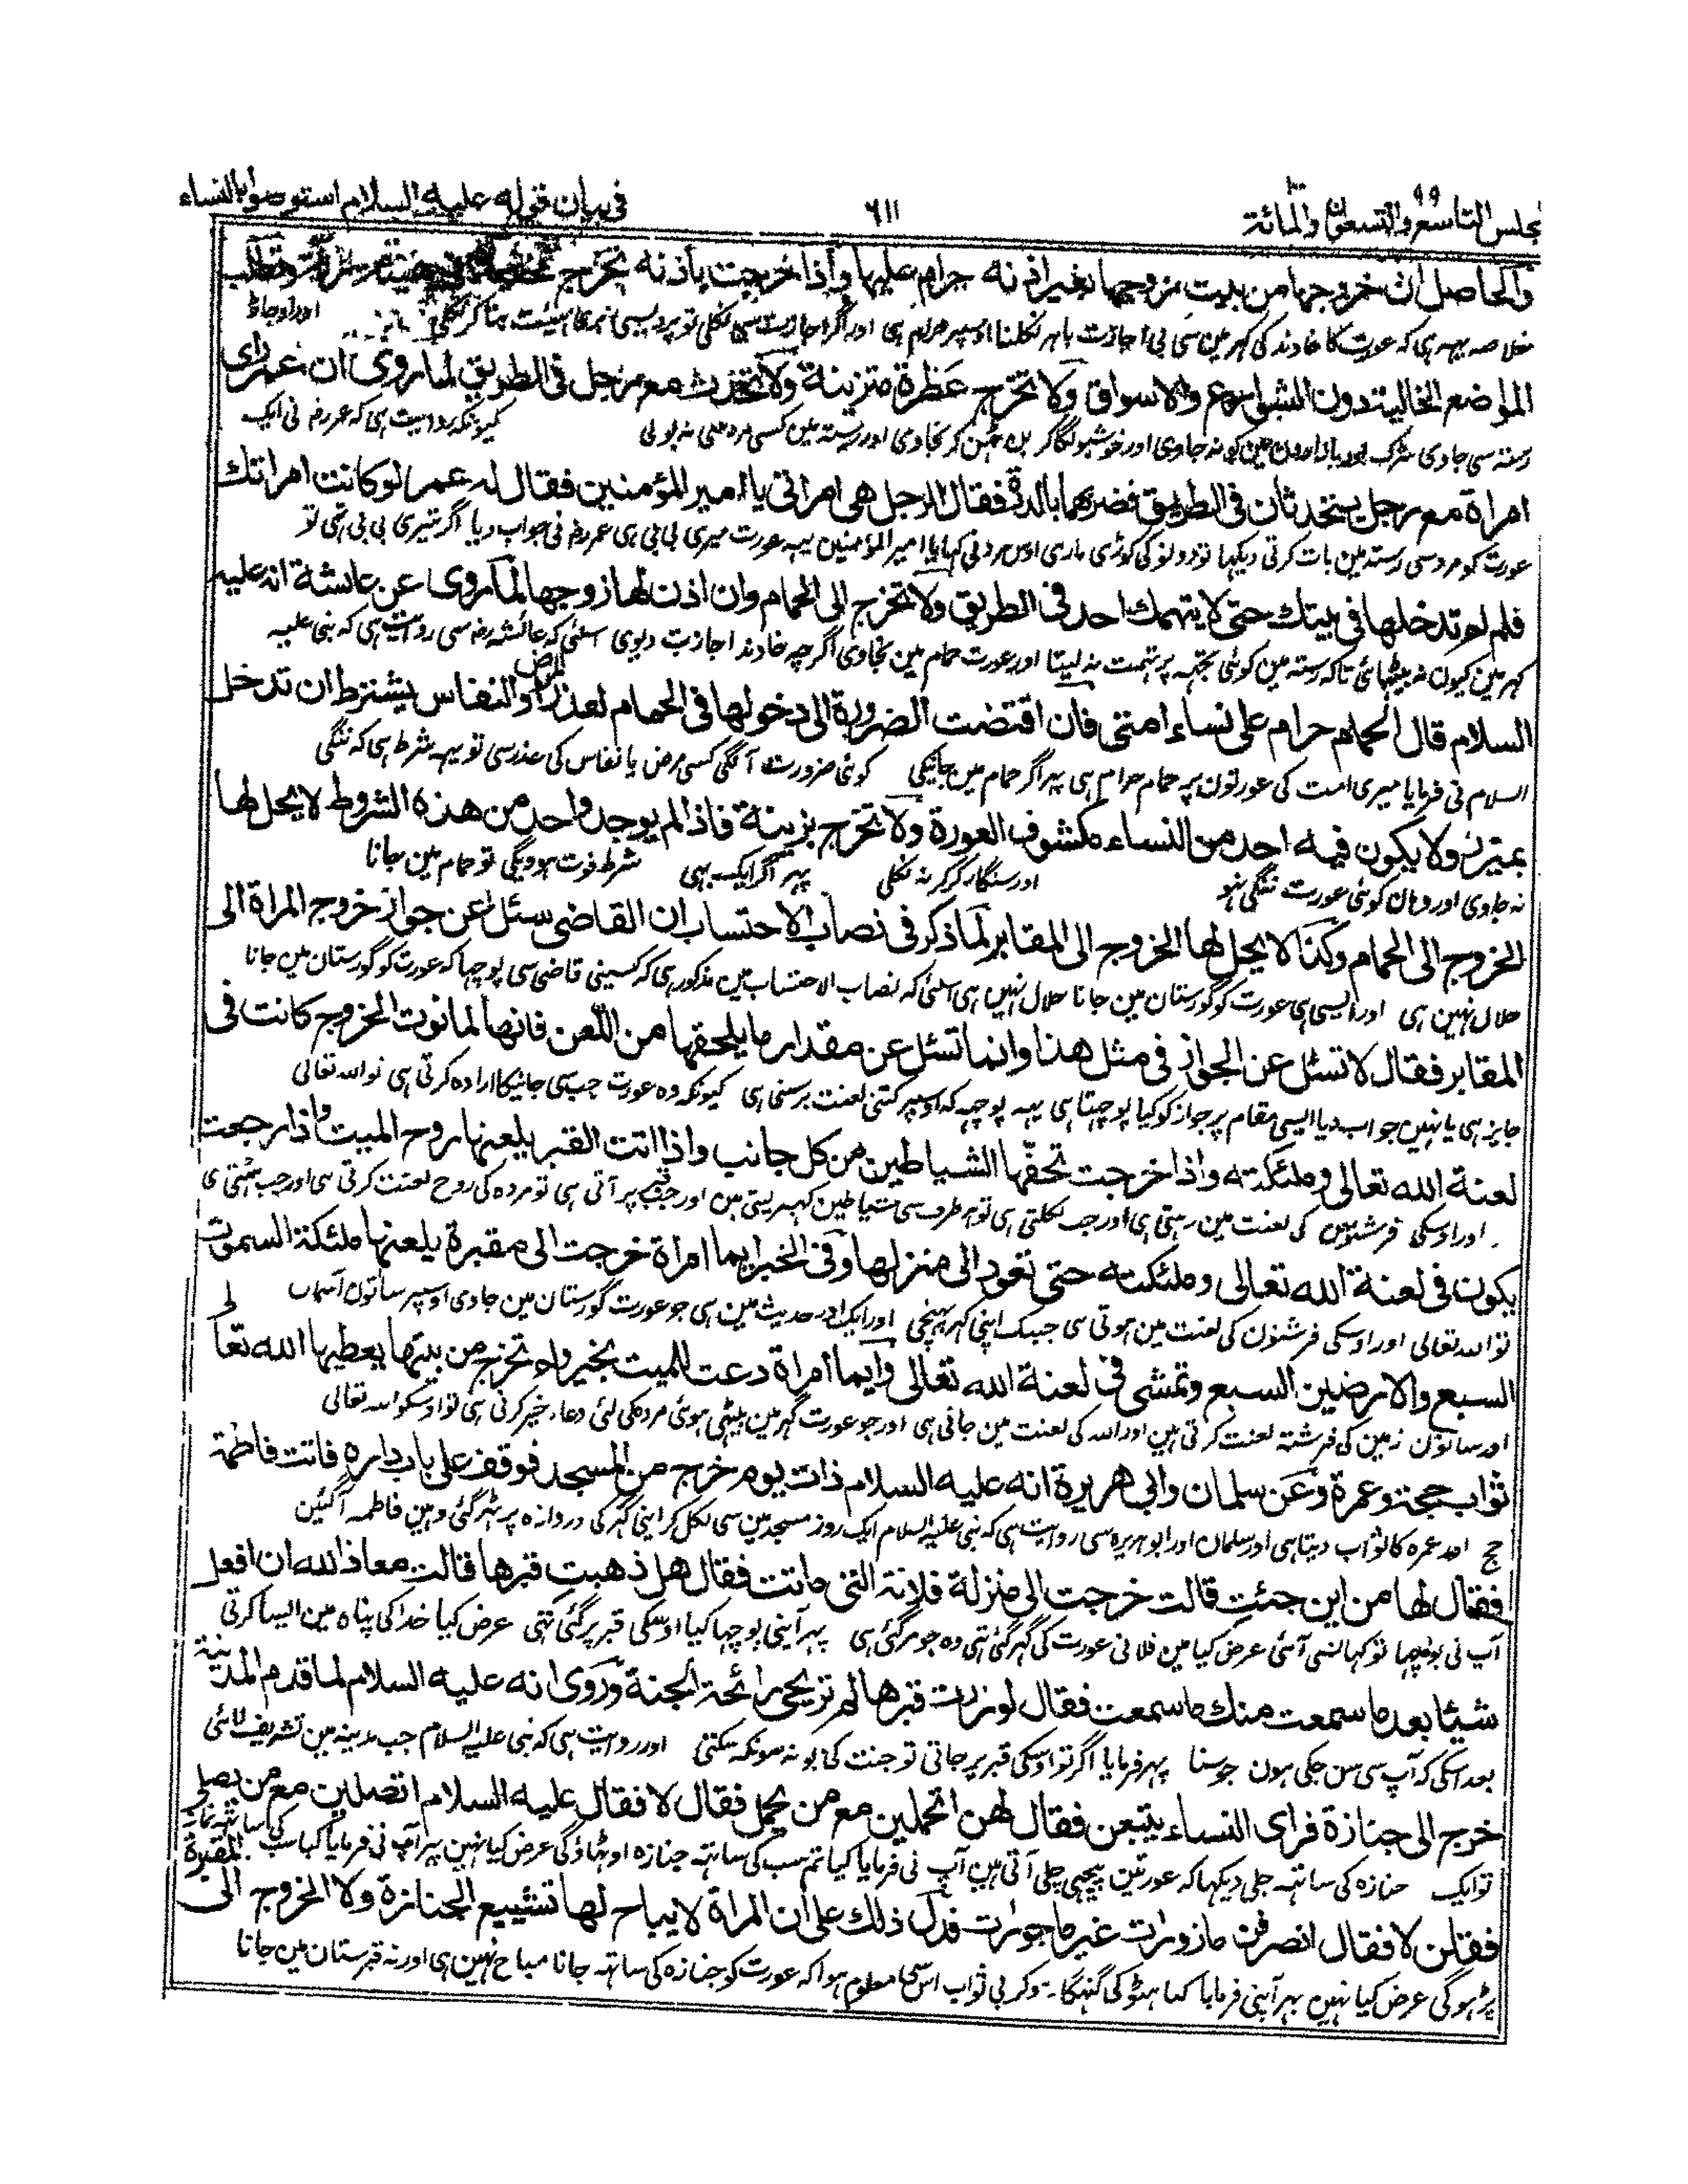 مجلس التاسع والتسعون والمائة ٦١١ في بيان قوله عليه السلام استوصوا بالنساء
والحاصل ان خروجها من بيت زوجها بغير اذنه حرام عليها واذا خرجت باذنه تخرج
خلاصه یهه هی که عورت کا خاوند کی گهر مین سی بی اجازت باهر نکلنا اوسپر حرام هی اور اگر اجازت سی نکلی تو
المواضع الخالية دون الشوارع والاسواق ولا تخرج عطرة متزينة ولا تتحدث مع رجل في الطريق لما روى ان عمر راى
رسته سی جاوی سڑک اور بازارون مین کو نه جاوی اور خوشبو لگا کر بن ٹهن کر نجاوی اور رسته مین کسی مرد سی نه بولی کیونکه روایت هی که عمر رض نی ایک
امراة مع رجل يتحدثان في الطريق فضربهما بالدرة فقال الرجل هي امراتي يا امير المؤمنين فقال له عمر لو كانت امراتك
عورت کو مرد سی رسته مین بات کرتی دیکها تو دونو کی کوڑی ماری اوس مرد نی کها یا امیر المؤمنین یهه عورت میری بی بی هی عمر رض نی جواب دیا اگر تیری بی بی تهی تو
فلم لم تدخلها في بيتك حتى لا يتهمك احد في الطريق ولا تخرج الى الحمام وان اذن لها زوجها لما روى عن عائشة انه عليه
گهر مین کیون نه بیٹهائی تاکه رسته مین کوئی تجهه پر تهمت نه لیتا اور عورت حمام مین نجاوی اگرچه خاوند اجازت دیوی اسلئی که عائشه رض سی روایت هی که نبی علیه
السلام قال الحمام حرام على نساء امتي فان اقتضت الضرورة الى دخولها في الحمام لعذر المرض او النفاس يشترط ان تدخل
السلام نی فرمایا میری امت کی عورتون پر حمام حرام هی پهر اگر حمام مین جانیکی کوئی ضرورت آ لگی کسی مرض یا نفاس کی عذر سی تو یهه شرط هی که ننگی
بمئزر ولا يكون فيه احد من النساء مكشوف العورة ولا تخرج بزينة فاذا لم يوجد واحد من هذه الشروط لا يحل لها
نه جاوی اور وهان کوئی عورت ننگی نهو اور سنگار کرکر نه نکلی پهر اگر ایک بهی شرط فوت هوویگی تو حمام مین جانا
الخروج الى الحمام وكذا لا يحل لها الخروج الى المقابر لما ذكر في نصاب الاحتساب ان القاضي سئل عن جواز خروج المراة الى
حلال نهین هی اور ایسی هی عورت کو گورستان مین جانا حلال نهین هی اسلئی که نصاب الاحتساب مین مذکور هی که کسینی قاضی سی پوچها که عورت کو گورستان مین جانا
المقابر فقال لا تسئل عن الجواز في مثل هذا وانما تسئل عن مقدار ما يلحقها من اللعن فانها لما نوت الخروج كانت في
جایز هی یا نهین جواب دیا ایسی مقام پر جواز کو کیا پوچهتا هی یهه پوچهه که اوسپر کتنی لعنت برستی هی کیونکه وه عورت جب سی جانیکا اراده کرتی هی تو الله تعالی
لعنة الله تعالى وملئكته واذا خرجت تحفها الشياطين من كل جانب واذا اتت القبر يلعنها روح الميت واذا رجعت
اور اوسکی فرشتون کی لعنت مین رهتی هی اور جب نکلتی هی تو هر طرف سی شیاطین گهیر لیتی هین اور جب قبر پر آتی هی تو مرده کی روح لعنت کرتی هی اور جب هٹتی هی
يكون في لعنة الله تعالى وملئكته حتى تعود الى منزلها وفي الخبر ايما امراة خرجت الى مقبرة يلعنها ملئكة السموت
تو الله تعالی اور اوسکی فرشتون کی لعنت مین هوتی هی جبتک اپنی گهر پهنچی اور ایک اور حدیث مین هی جو عورت گورستان مین جاوی اوسپر ساتون آسمان
السبع والارضين السبع وتمشي في لعنة الله تعالى وايما امراة دعت للميت بخير ولم تخرج من بيتها يعطيها الله تعالى
اور ساتون زمین کی فرشته لعنت کرتی هین اور الله کی لعنت مین جاتی هی اور جو عورت گهر مین بیٹهی هوئی مرده کی لئی دعاء خیر کرتی هی تو اوسکو الله تعالی
ثواب حجة وعمرة وعن سلمان وابي هريرة انه عليه السلام ذات يوم خرج من المسجد فوقف على باب داره فاتت فاطمة
حج اور عمره کا ثواب دیتا هی اور سلمان اور ابو هریره سی روایت هی که نبی علیه السلام ایک روز مسجد مین سی نکل کر اپنی گهر کی دروازه پر ٹهر گئی وهین فاطمه آ گئین
فقال لها من اين جئت قالت خرجت الى منزلة فلانة التي ماتت فقال هل ذهبت قبرها قالت معاذ الله ان افعل
آپ نی پوچها تو کهانسی آئی عرض کیا مین فلانی عورت کی گهر گئی تهی وه جو مر گئی هی پهر آپنی پوچها کیا اوسکی قبر پر گئی تهی عرض کیا خدا کی پناه مین ایسا کرتی
شيئا بعد ما سمعت منك ما سمعت فقال لو زرت قبرها لم تريحي رائحة الجنة وروى انه عليه السلام لما قدم المدينة
بعد اسکی که آپ سی سن چکی هون جو سنا پهر فرمایا اگر تو اوسکی قبر پر جاتی تو جنت کی بو نه سونگهه سکتی اور روایت هی که نبی علیه السلام جب مدینه مین تشریف لائی
خرج الى جنازة فراى النساء يتبعن فقال لهن اتحملين مع من يحمل فقال لا فقال عليه السلام اتصلين مع من يصلي
تو ایک جنازه کی ساتهه چلی دیکها که عورتین پیچهی چلی آتی هین آپ نی فرمایا کیا تم سب کی ساتهه جنازه اوٹهاؤ گی عرض کیا نهین پهر آپ نی فرمایا کیا سب کی ساتهه نماز
فقلن لا فقال انصرفن مازورات غير ماجورات فدل ذلك على ان المراة لا يباح لها تشييع الجنازة ولا الخروج الى المقبرة
پڑهو گی عرض کیا نهین پهر آپنی فرمایا هٹو کی گنهگار هوکر بی ثواب اس سی معلوم هوا که عورت کو جنازه کی ساتهه جانا مباح نهین هی اور نه قبرستان مین جانا